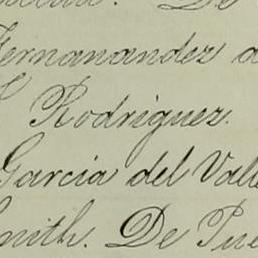 De
Fernanandez d
Rodriguez.
Garcia del Valle
Smith. De Pue